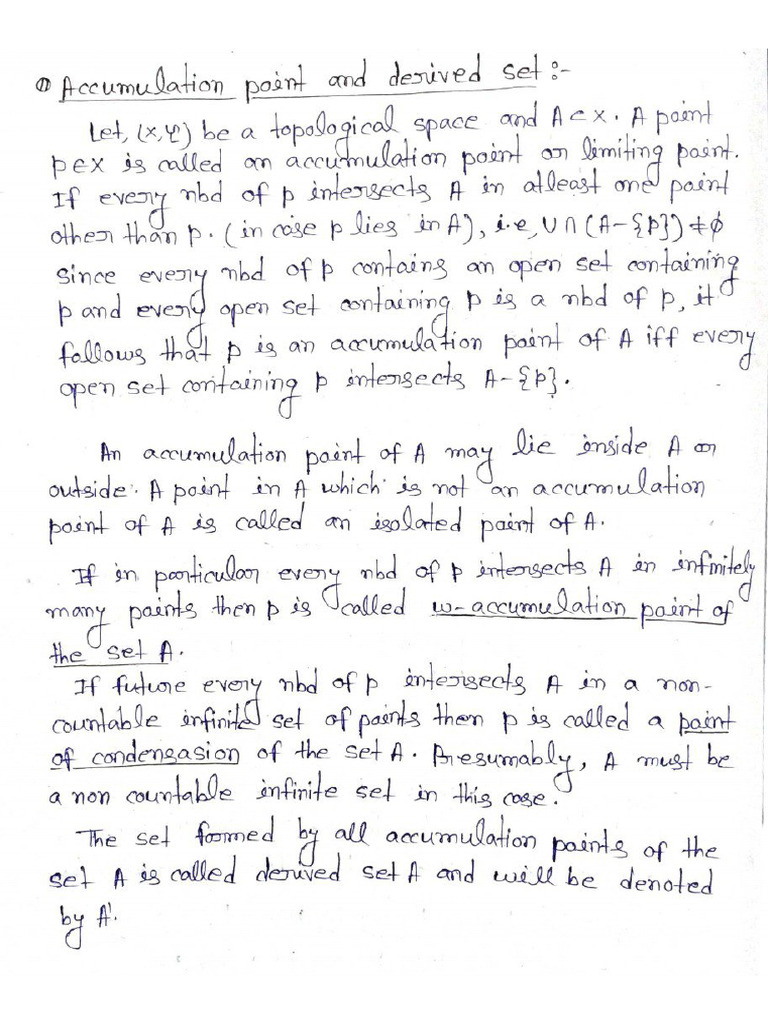 ① Accumulation point and derived set :-
Let, (X,φ) be a topological space and A⊂X. A point
p∈X is called an accumulation point or limiting point.
If every nbd of p intersects A in atleast one point
other than p. (in case p lies in A), i.e, U∩(A-{p})≠ϕ
Since every nbd of p contains an open set containing
p and every open set containing p is a nbd of p, it
follows that p is an accumulation point of A iff every
open set containing p intersects A-{p}.
An accumulation point of A may lie inside A or
outside. A point in A which is not an accumulation
point of A is called an isolated point of A.
If in particular every nbd of p intersects A in infinitely
many points then p is called w-accumulation point of
the set A.
If future every nbd of p intersects A in a non-
countable infinite set of points then p is called a point
of condensasion of the set A. Presumably, A must be
a non countable infinite set in this case.
The set formed by all accumulation points of the
set A is called derived set A and will be denoted
by A'.